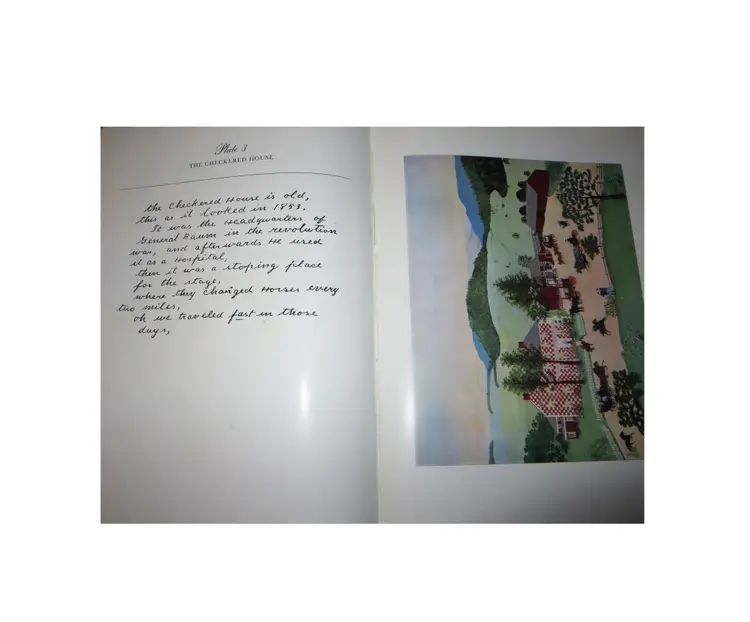 Plate 3
THE CHECKERED HOUSE
the Checkered House is old,
this as it looked in 1853.
It was the Headquarters of
General Baum in the revolution
war, and afterwards He used
it as a Hospital,
then it was a stoping place
for the stage,
where they changed Horses every
two miles,
oh we traveled fast in those
days,